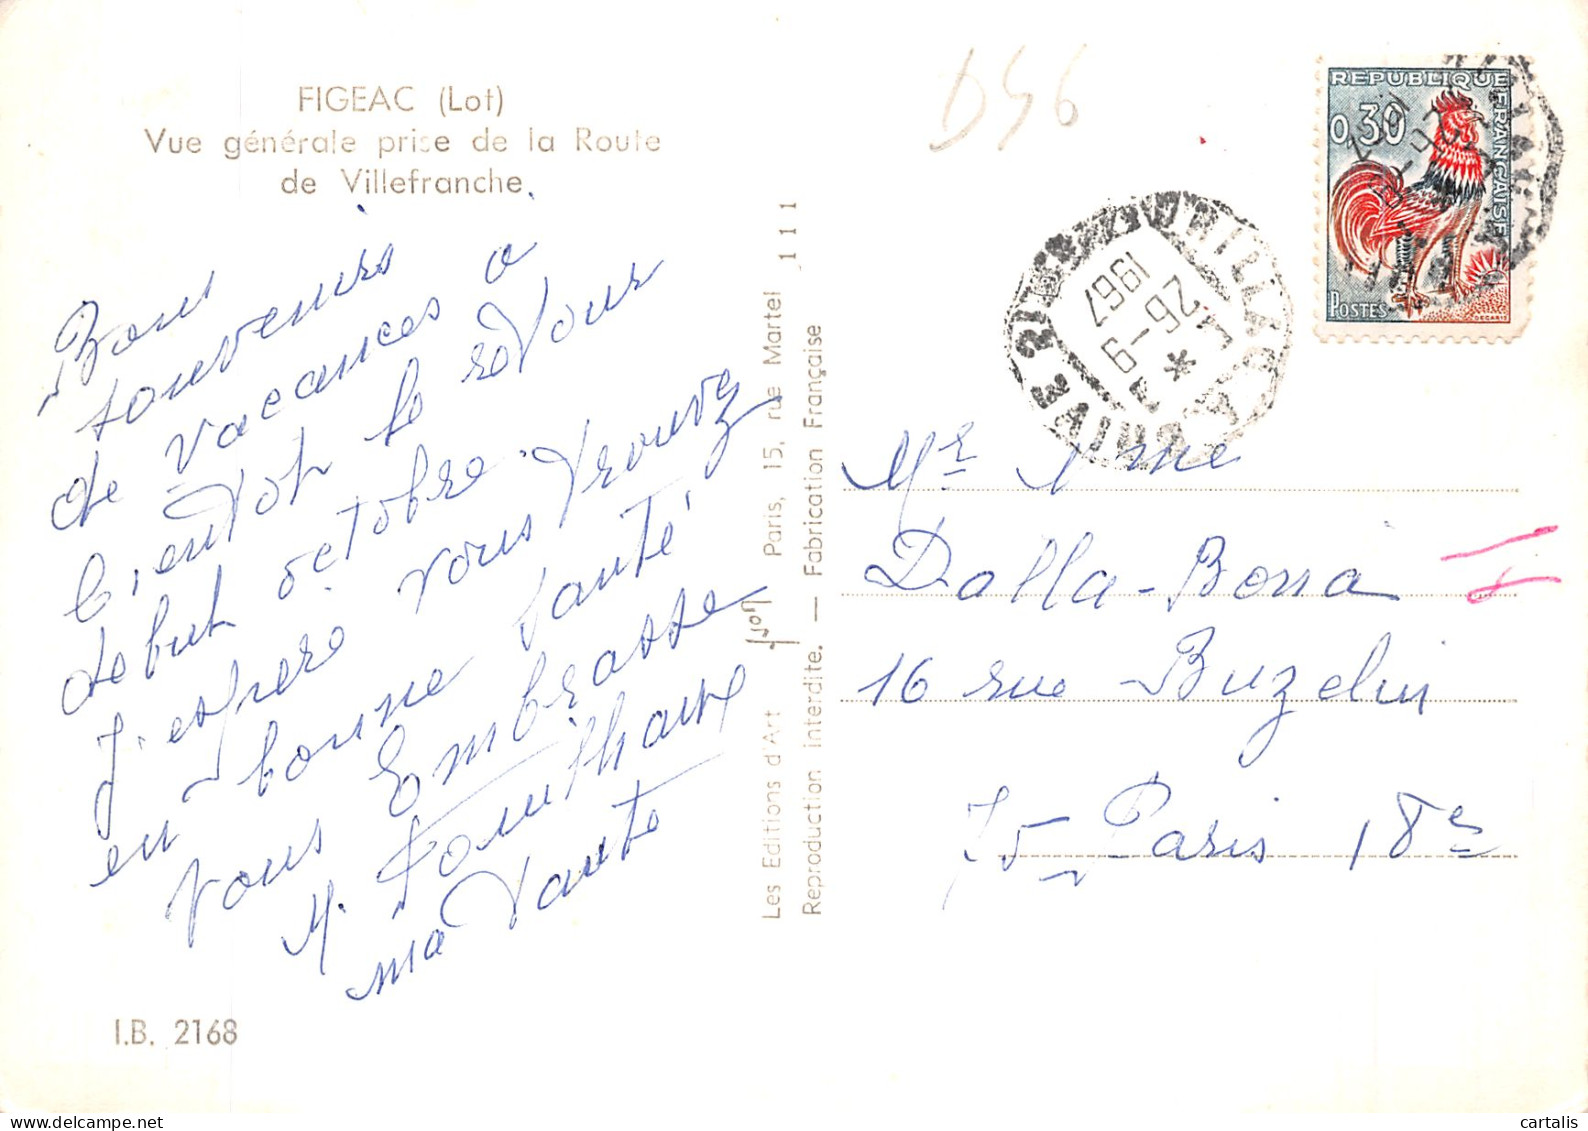 FIGEAC (Lot)
Vue générale prise de la Route
de Villefranche
Bons
souvenirs
de vacances a
bientot le retour
debut octobre.
J. espere vous trouvez
en bonne santé
vous Embrasse
M.
ma Tante
I.B. 2168
Les Editions d'Art Yvon Paris, 15, rue Martel 1 1 1
Reproduction interdite. — Fabrication Française
D46
REPUBLIQUE FRANÇAISE
0,30
POSTES
DECARIS
26-9
1967
Mr Mme
Dalla-Bona
16 rue Buzelin
75 Paris 18e
cartalis